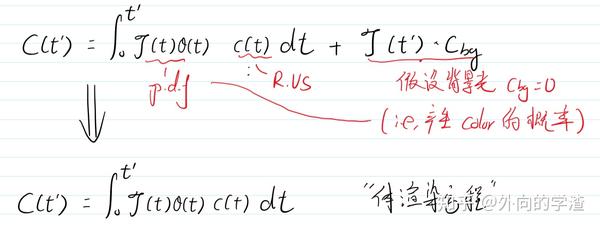 C(t') = ∫₀^t' T(t)σ(t) c(t) dt + T(t')·C_bg
p.d.f ∴ R.VS 假设背景光 C_bg = 0
(i.e. 产生 color 的概率)
⇓
C(t') = ∫₀^t' T(t)σ(t) c(t) dt "体渲染方程"
知乎 @外向的学渣